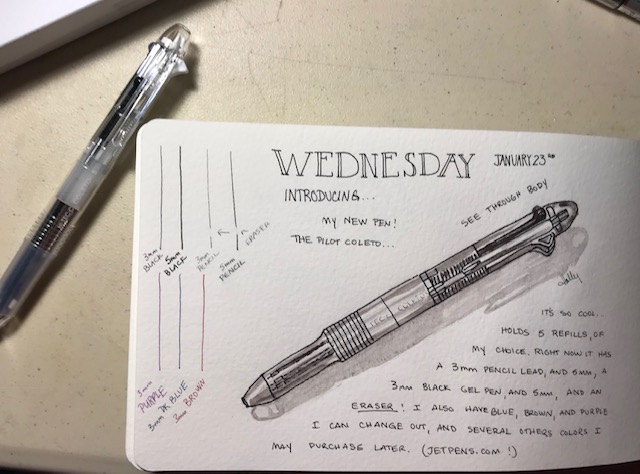 WEDNESDAY JANUARY 23RD
INTRODUCING...
MY NEW PEN!
THE PILOT COLETO...
SEE THROUGH BODY
3mm BLACK
5mm BLACK
3mm PENCIL
5mm PENCIL
ERASER
3mm PURPLE
3mm DK BLUE
3mm BROWN
Sally
IT'S SO COOL...
HOLDS 5 REFILLS, OF
MY CHOICE. RIGHT NOW IT HAS
A 3mm PENCIL LEAD, AND 5mm, A
3mm BLACK GEL PEN, AND 5mm, AND AN
ERASER! I ALSO HAVE BLUE, BROWN, AND PURPLE
I CAN CHANGE OUT, AND SEVERAL OTHERS COLORS I
MAY PURCHASE LATER. (JETPENS.COM!)